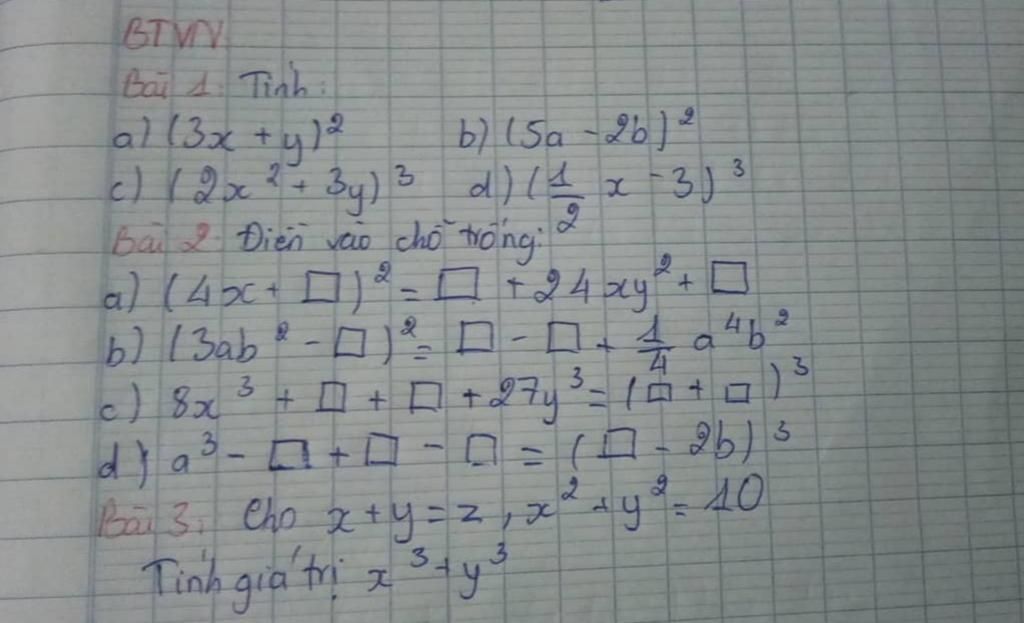 BTVN
Bài 1: Tính:
a) (3x + y)² b) (5a - 2b)²
c) (2x² + 3y)³ d) (1/2 x - 3)³
Bài 2: Điền vào chỗ trống:
a) (4x + □)² = □ + 24xy² + □
b) (3ab² - □)² = □ - □ + 1/4 a⁴b²
c) 8x³ + □ + □ + 27y³ = (□ + □)³
d) a³ - □ + □ - □ = (□ - 2b)³
Bài 3: Cho x + y = 2, x² + y² = 10
Tính giá trị x³ + y³